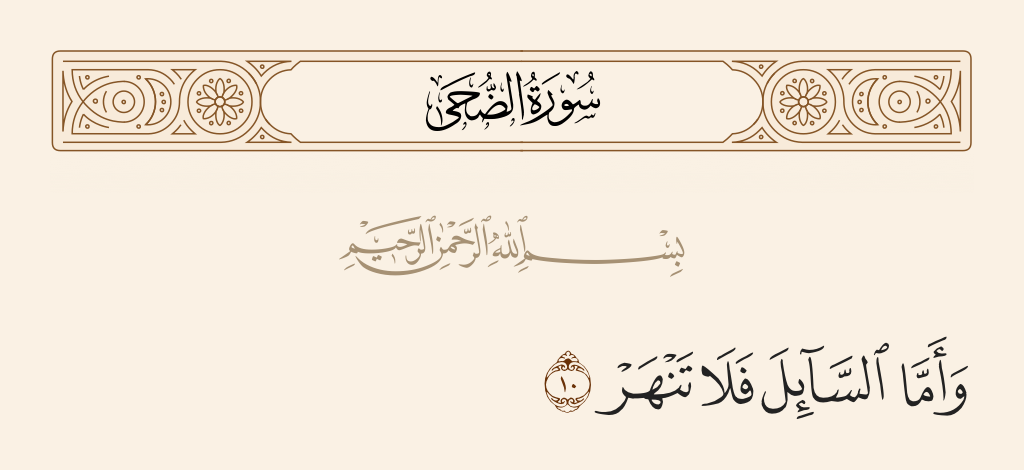 سُورَةُ الضُّحَىٰ
بِسْمِ ٱللَّهِ ٱلرَّحْمَٰنِ ٱلرَّحِيمِ
وَأَمَّا ٱلسَّآئِلَ فَلَا تَنْهَرْ ١٠